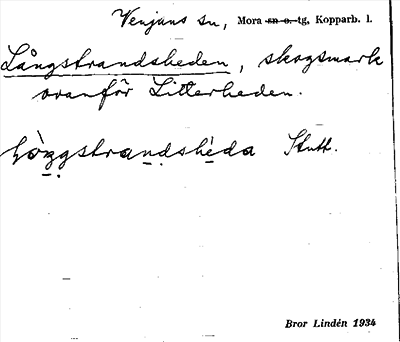 Venjans sn, Mora sn o. tg, Kopparb. l.
Långstrandsheden, skogsmark
ovanför Litterheden.
lòŋgstrandshèda Stutt.
Bror Lindén 1934